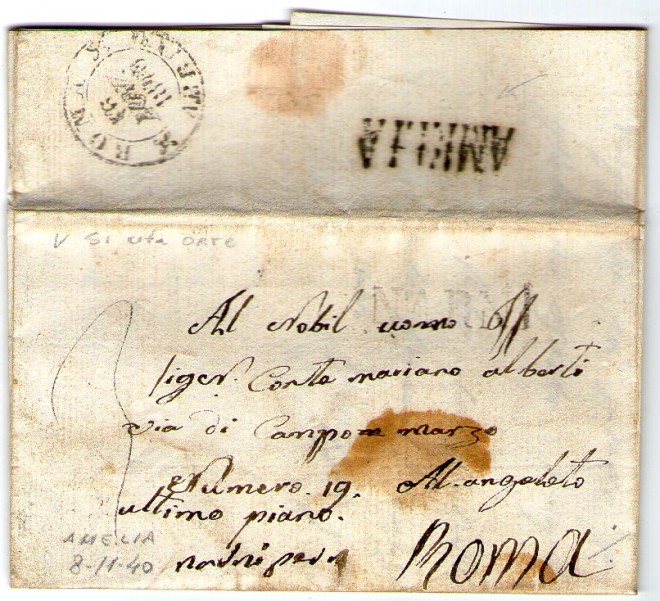 AMELIA
V SI via ORTE
NARNI
Al Nobil uomo Il
Siger. Conte mariano alberti
via di Campo marzo
Numero 19. Al angoleto
ultimo piano.
AMELIA
8-11-40
Roma